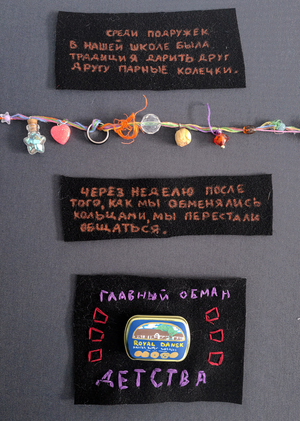 СРЕДИ ПОДРУЖЕК
В НАШЕЙ ШКОЛЕ БЫЛА
ТРАДИЦИЯ ДАРИТЬ ДРУГ
ДРУГУ ПАРНЫЕ КОЛЕЧКИ.
ЧЕРЕЗ НЕДЕЛЮ ПОСЛЕ
ТОГО, КАК МЫ ОБМЕНЯЛИСЬ
КОЛЬЦАМИ, МЫ ПЕРЕСТАЛИ
ОБЩАТЬСЯ.
ГЛАВНЫЙ ОБМАН
ROYAL DANSK
ДЕТСТВА